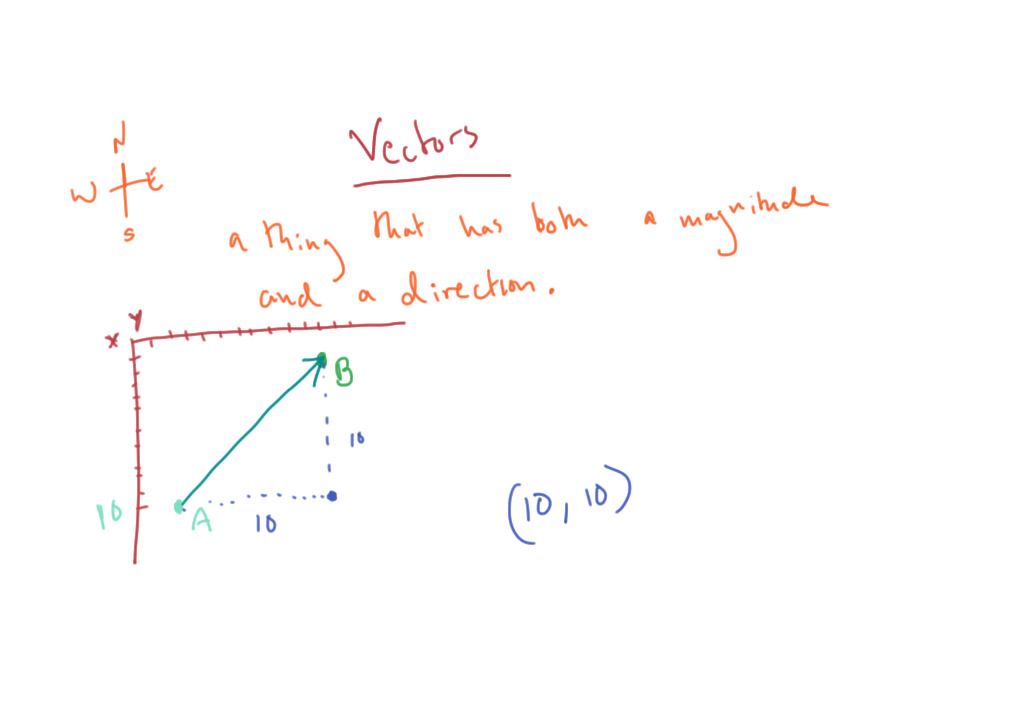 Vectors
N
W E
S
a thing that has both a magnitude
and a direction.
Y
X
B
10
10
A
10
(10, 10)